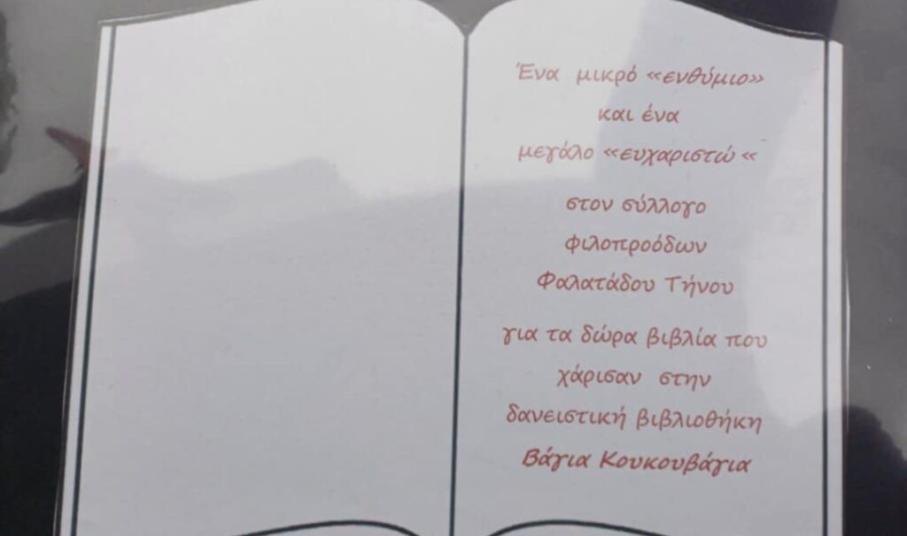 Ένα μικρό «ενθύμιο»
και ένα
μεγάλο «ευχαριστώ «
στον σύλλογο
φιλοπροόδων
Φαλατάδου Τήνου
για τα δώρα βιβλία που
χάρισαν στην
δανειστική βιβλιοθήκη
Βάγια Κουκουβάγια